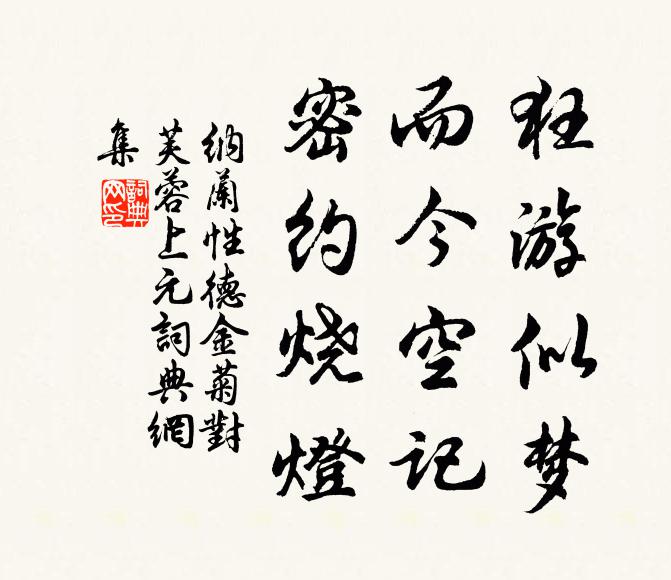 狂游似梦
而今空记
密约烧燈
纳蘭性德金菊對
芙蓉上元詞典網
集
詞典网印